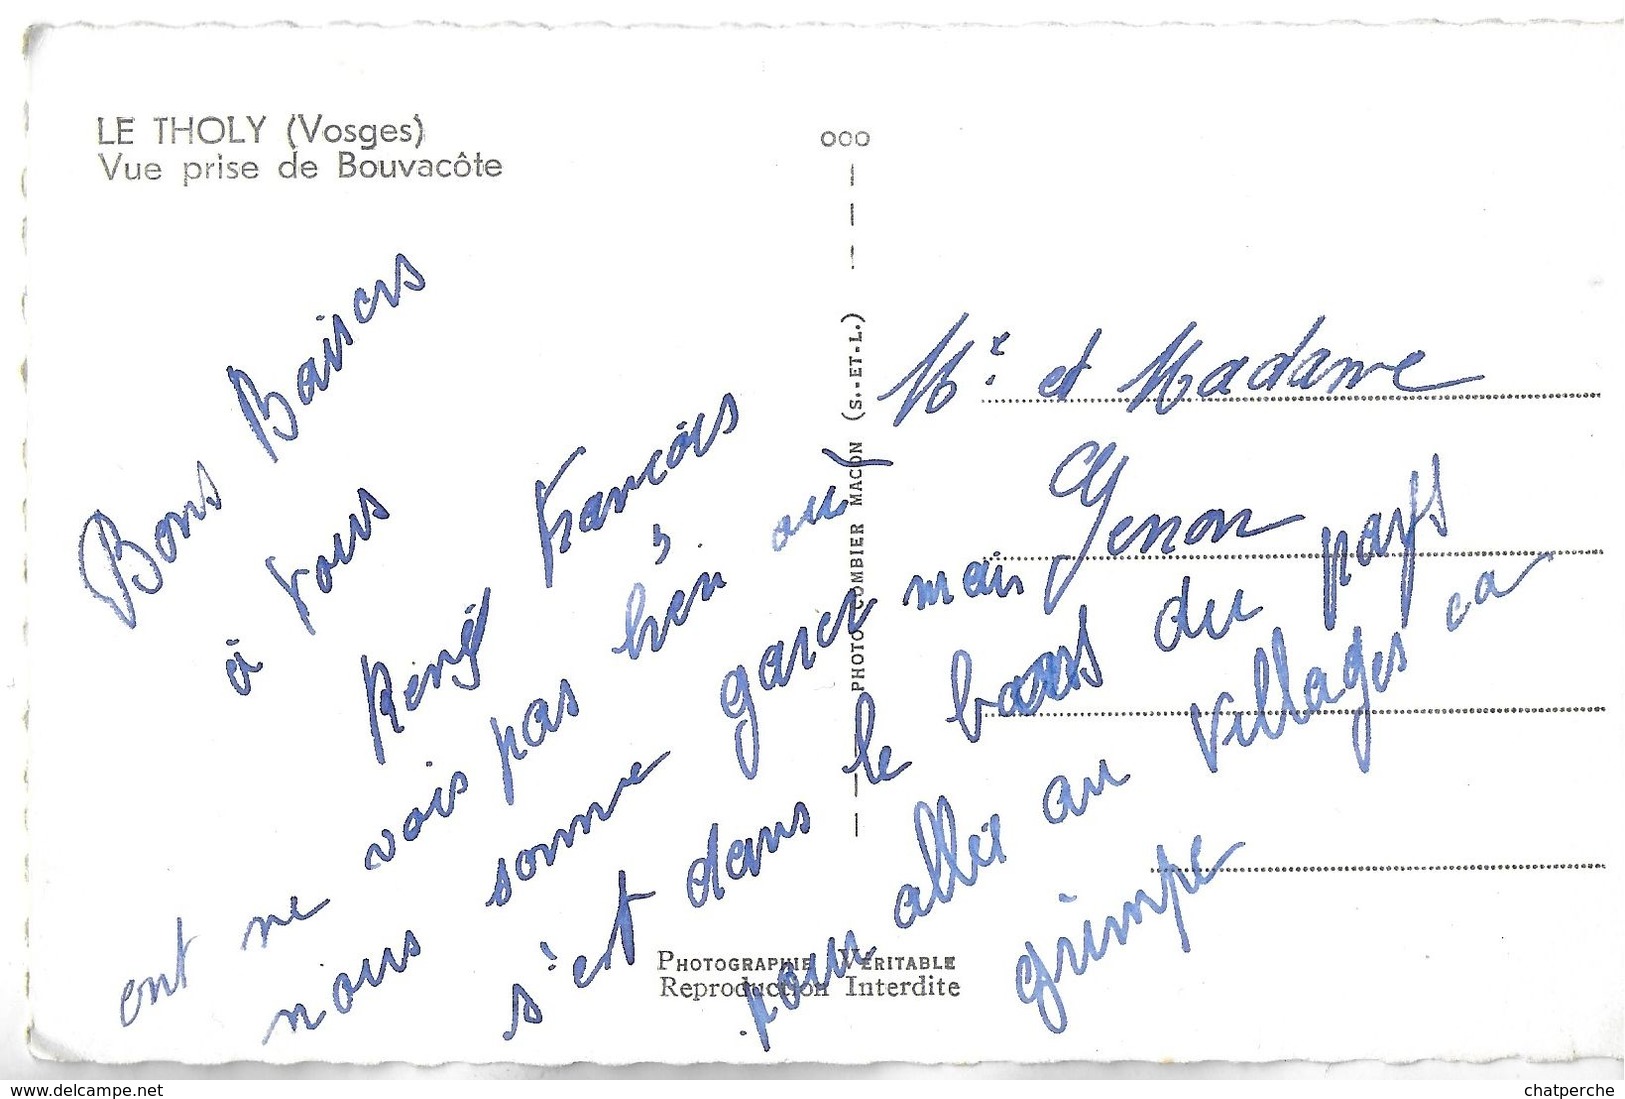 LE THOLY (Vosges)
Vue prise de Bouvacôte
ooo
PHOTO COMBIER MACON (S.-ET-L.)
Bons Baisers
à tous
François
ont ne vois pas bien ou
nous somme garer mais
s'est dans le bas du pays
pour aller au villages ca
grimpe
Mr. et Madame
Genon
PHOTOGRAPHIE VÉRITABLE
Reproduction Interdite
www.delcampe.net
chatperche